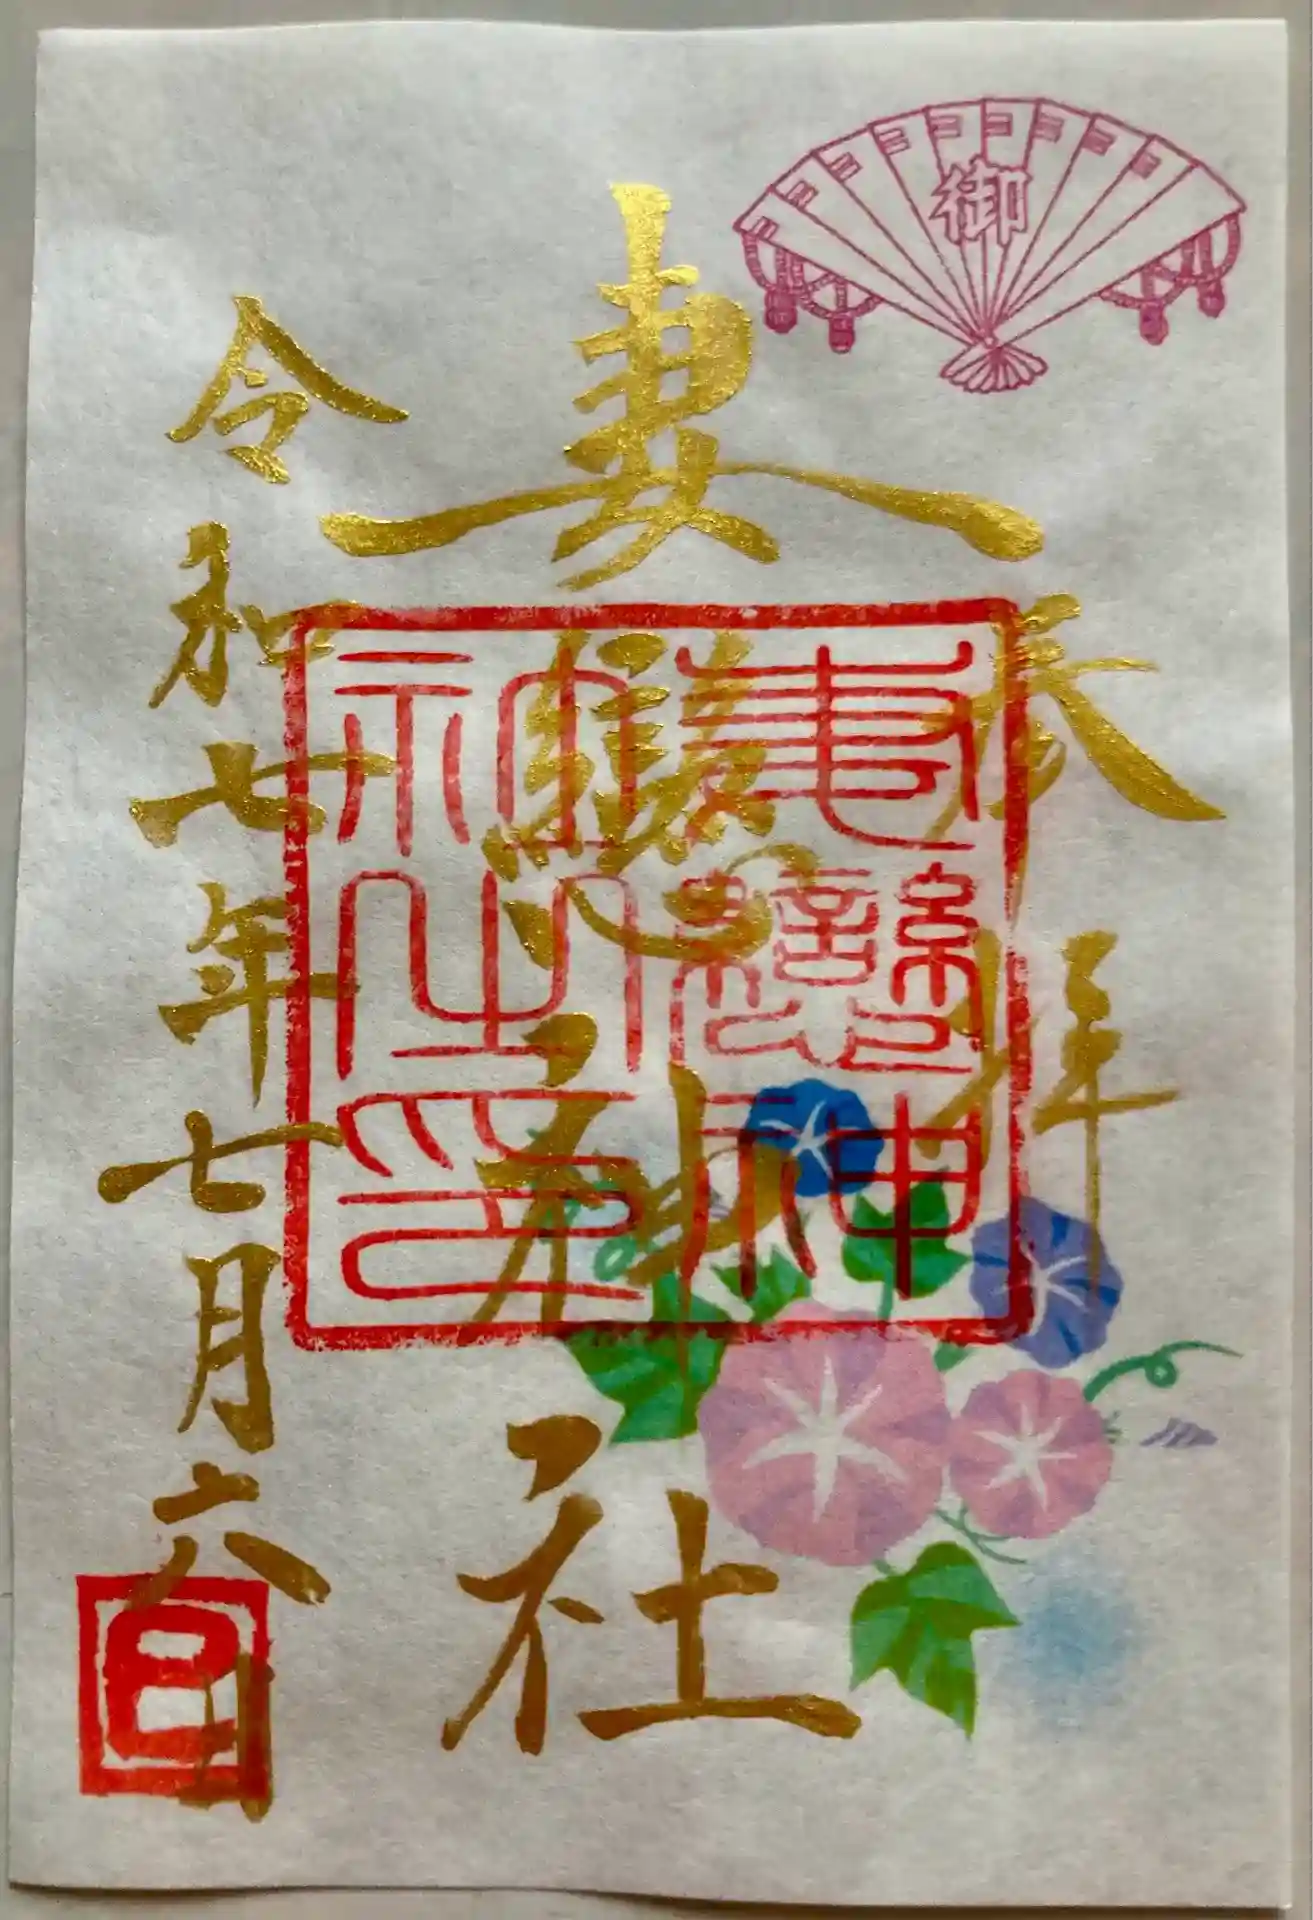 御
奉拝
妻戀神社
妻戀神
社之印
令和七年七月六日